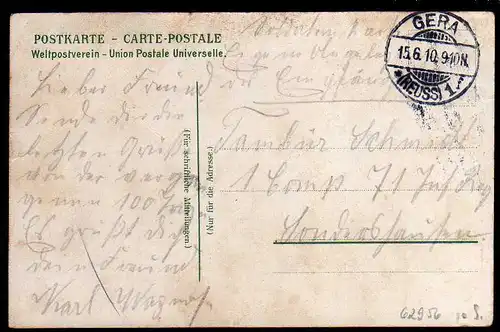 POSTKARTE - CARTE-POSTALE
Weltpostverein - Union Postale Universelle.
Soldaten
Eigene Angele
des Empfängers
GERA
15.6.10.9-10N.
*(REUSS) 1.f
Lieber Freund
Sende dir die
letzten Grüße
von der
100
Es grüßt dich
dein Freund
Karl
(Für schriftliche Mitteilungen.)
(Nur für die Adresse.)
Tambur Schmidt
1 Comp 71 Inf Reg
Sondershausen
62956